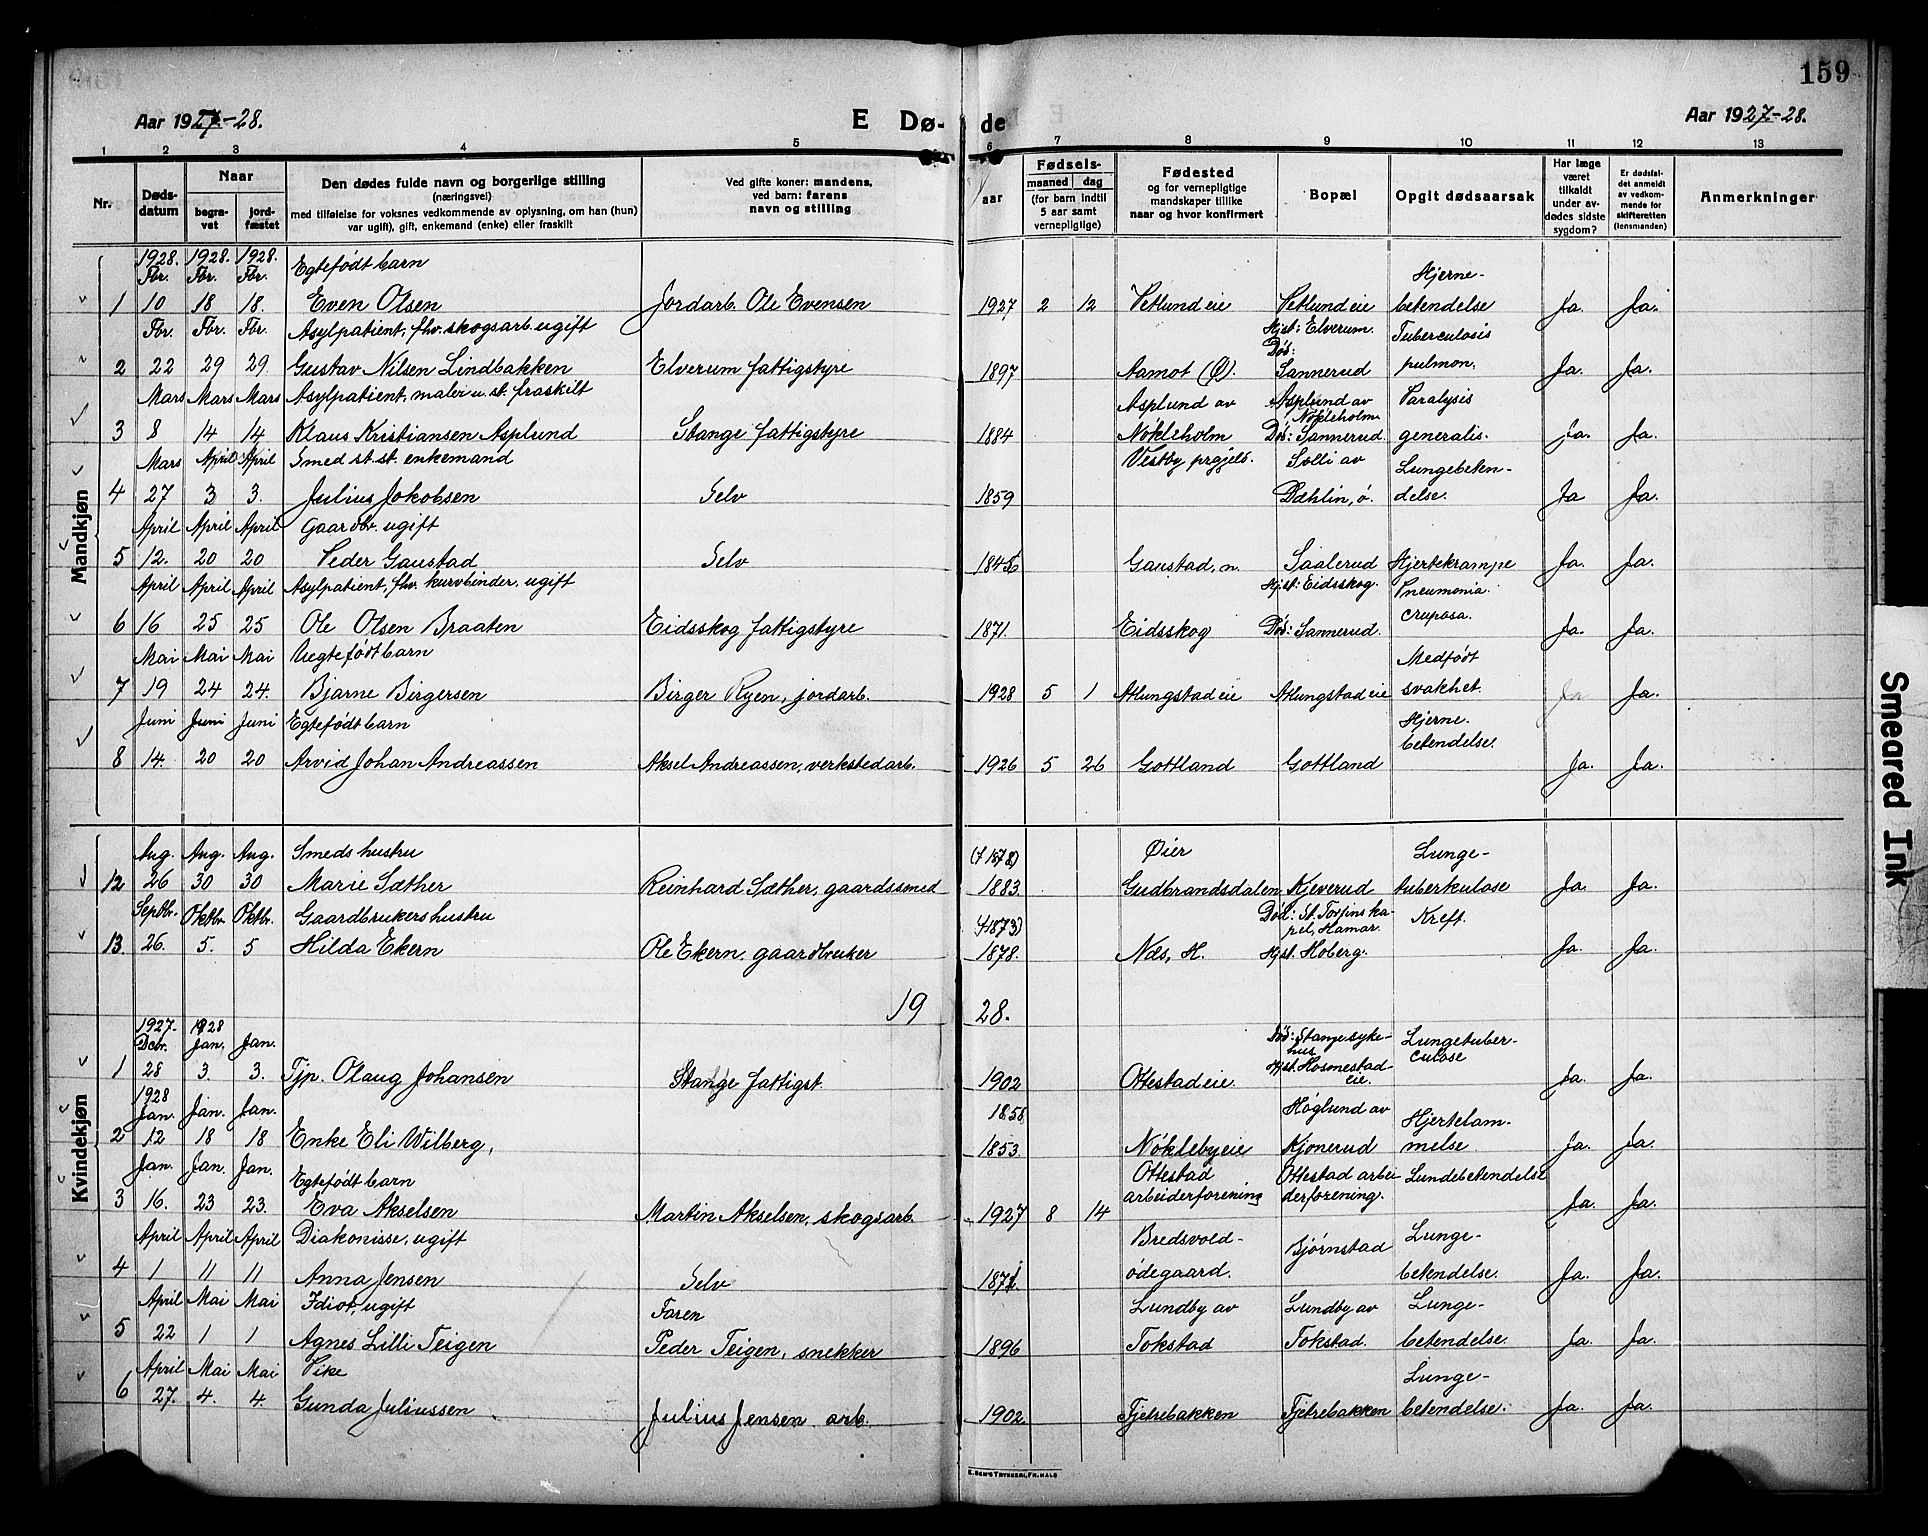 159
Aar 1927-28. E Dø- de Aar 1927-28.
1 2 3 4 5 6 7 8 9 10 11 12 13
Nr. Døds-datum Naar begra-vet jord-fæstet Den dødes fulde navn og borgerlige stilling (næringsvei) med tilføielse for voksnes vedkommende av oplysning, om han (hun) var ugift), gift, enkemand (enke) eller fraskilt Ved gifte koner: mandens, ved barn: farens navn og stilling aar Fødsels- maaned dag (for barn indtil 5 aar samt vernepligtige) Fødested og for vernepligtige mandskaper tillike naar og hvor konfirmert Bopæl Opgit dødsaarsak Har læge været tilkaldt under av-dødes sidste sygdom? Er dødsfal-det anmeldt av vedkom-mende for skifteretten (lensmanden) Anmerkninger
Mandkjøn
1928. 1928. 1928.
Fbr. Fbr. Fbr. Egtefødt barn Hjerne-
1 10 18 18. Even Olsen Jordarb. Ole Evensen 1927 2 12 Vetlund eie Vetlund eie betendelse Ja. Ja.
Fbr. Fbr. Fbr. Asylpatient, fhv. skogsarb. ugift Hjst: Elverum. Tuberculosis
Død:
2 22 29 29. Gustav Nilsen Lindbakken Elverum fattigstyre 1897 Aamot (Ø). Sannerud pulmon. Ja. Ja.
Mars Mars Mars Asylpatient, maler u. st. fraskilt Asplund av Asplund av Nøkleholm Paralysis
3 8 14 14 Klaus Kristiansen Asplund Stange fattigstyre 1884 Nøkleholm Død: Sannerud. generalis. Ja. Ja.
Mars April April Smed st. st. enkemand Vestby prgjeld. Solli av Lungebeten-
4 27 3 3. Julius Jakobsen Selv 1859 Dæhlin, ø. delse. Ja Ja.
April April April Gaardbr. ugift
5 12. 20 20 Peder Gaustad Selv 1845 Gaustad, n. Saalerud Hjertekrampe Ja. Ja.
April April April Asylpatient, fhv. kurvbinder, ugift Hjst: Eidsskog. Pneumonia
6 16 25 25 Ole Olsen Braaten Eidsskog fattigstyre 1871. Eidsskog Død: Sannerud. cruposa. Ja. Ja.
Mai Mai Mai Uegtefødt barn Medfødt
7 19 24 24. Bjarne Birgersen Birger Ryen, jordarb. 1928 5 1 Atlungstad eie Atlungstad eie svakhet. Ja Ja.
Juni Juni Juni Egtefødt barn Hjerne-
8 14. 20 20 Arvid Johan Andreassen Aksel Andreassen, verkstedarb. 1926 5 26 Gottland Gottland betendelse. Ja. Ja.
Aug. Aug. Aug. Smeds hustru (f 1878) Øier Lunge-
12 26 30 30 Marie Sæther Reinhard Sæther, gaardssmed 1883. Gudbrandsdalen Kjeverud tuberkulose Ja. Ja.
Septbr. Oktbr. Oktbr. Gaardbrukers hustru (f1873) Død: St. Torfins ka-pel, Hamar. Kreft.
13. 26. 5. 5 Hilda Ekern Ole Ekern, gaardbruker 1878. Nds, H. Hjst. Hoberg. Ja. Ja.
19 28.
Kvindekjøn
1927. 1928
Dcbr. Jan. Jan. Død: Stange syke-hus Lungetuber-
1 28 3. 3. Tjp. Olaug Johansen Stange fattigst. 1902 Ottestad eie. Hjst. Hosmestad eie. culose Ja. Ja.
1928
Jan. Jan. Jan. 1858 Høglund av Hjertelam-
2 12 18 18 Enke Eli Wilberg, 1853. Nøkleby eie Kjonerud melse. Ja. Ja.
Jan. Jan. Jan. Egtefødt barn Ottestad Ottestad arbei- Lundebetendelse
3 16. 23 23. Eva Akselsen Martin Akselsen, skogsarb. 1927 8 14 arbeiderforening derforening. Ja. Ja.
April April April Diakonisse, ugift Bredsvold- Bjørnstad Lunge-
4 1 11 11 Anna Jensen Selv 1871 ødegaard. betendelse. Ja. Ja.
April Mai Mai Idiot, ugift Faren Lundby av Lundby av Lunge-
5 22 1 1 Agnes Lilli Teigen Peder Teigen, snekker 1896 Tokstad Tokstad. betendelse. Ja. Ja.
April Mai Mai Pike Lunge-
6 27. 4. 4. Gunda Juliussen Julius Jensen arb. 1902 Fjetrebakken Fjetrebakken betendelse. Ja. Ja.
E. SEM'S TRYKKERI, FR.HALD
Smeared Ink